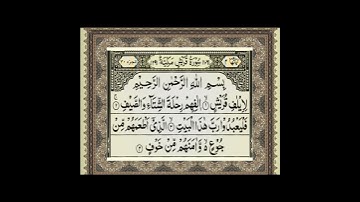 سُورَةُ قُرَيْشٍ مَكِّيَّةٌ
بِسْمِ اللّٰهِ الرَّحْمٰنِ الرَّحِيْمِ
لِاِيْلٰفِ قُرَيْشٍ ۙ۝۱ اٖلٰفِهِمْ رِحْلَةَ الشِّتَآءِ وَالصَّيْفِ ۚ۝۲
فَلْيَعْبُدُوْا رَبَّ هٰذَا الْبَيْتِ ۙ۝۳ الَّذِيْٓ اَطْعَمَهُمْ مِّنْ
جُوْعٍ ۙ وَّاٰمَنَهُمْ مِّنْ خَوْفٍ ۝۴